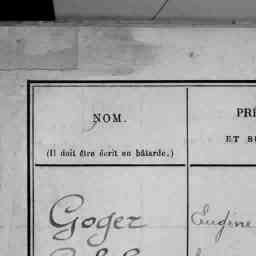 NOM.
PRÉ
ET SU
(Il doit être écrit en bâtarde.)
Goger
Eugène